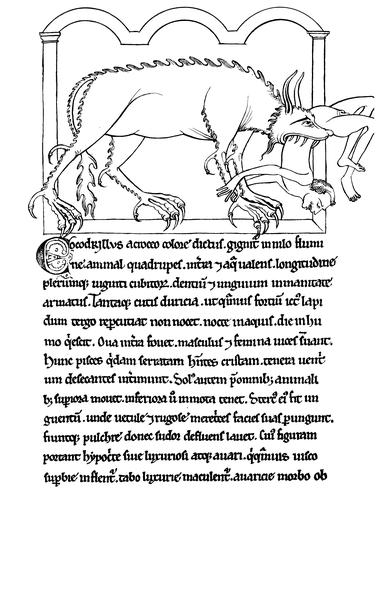 Cocodrillus a croceo colore dictus. gignit͛ in nilo flumi
ne. animal quadrupes. int̃ra ⁊ aq̃ ualens. longitudine
plerumq; uiginti cubitor̃. dentiũ ⁊ unguium inmanitate
armatus. Tantaq; cutis duricia. ut q̃muis fortiũ ictꝰ lapi
dum tergo repercutiat non nocet. nocte in aquis. die in hu
mo q̃escit. Oua int̃ra fouet. masculus ⁊ femina uices s̃uant.
Hunc pisces q̃dam serratam h̃ntes cristam. tenera uent̃
um desecantes int̃imunt. Solꝰ autem p̃ omnibꝫ animali
bꝫ supiora mouet. inferiora ũ inmota tenet. Stercꝰ eiꝰ fit un
guentũ. unde uetule ⁊ rugose meretrices facies suas pungunt.
fiuntq; pulchre donec sudor defluens lauet. Cuiꝰ figuram
portant hypocrite siue luxuriosi atq; auari. q̃q̃muis uisco
supbie inflent͛. tabo luxurie maculent͛. auaricie morbo ob